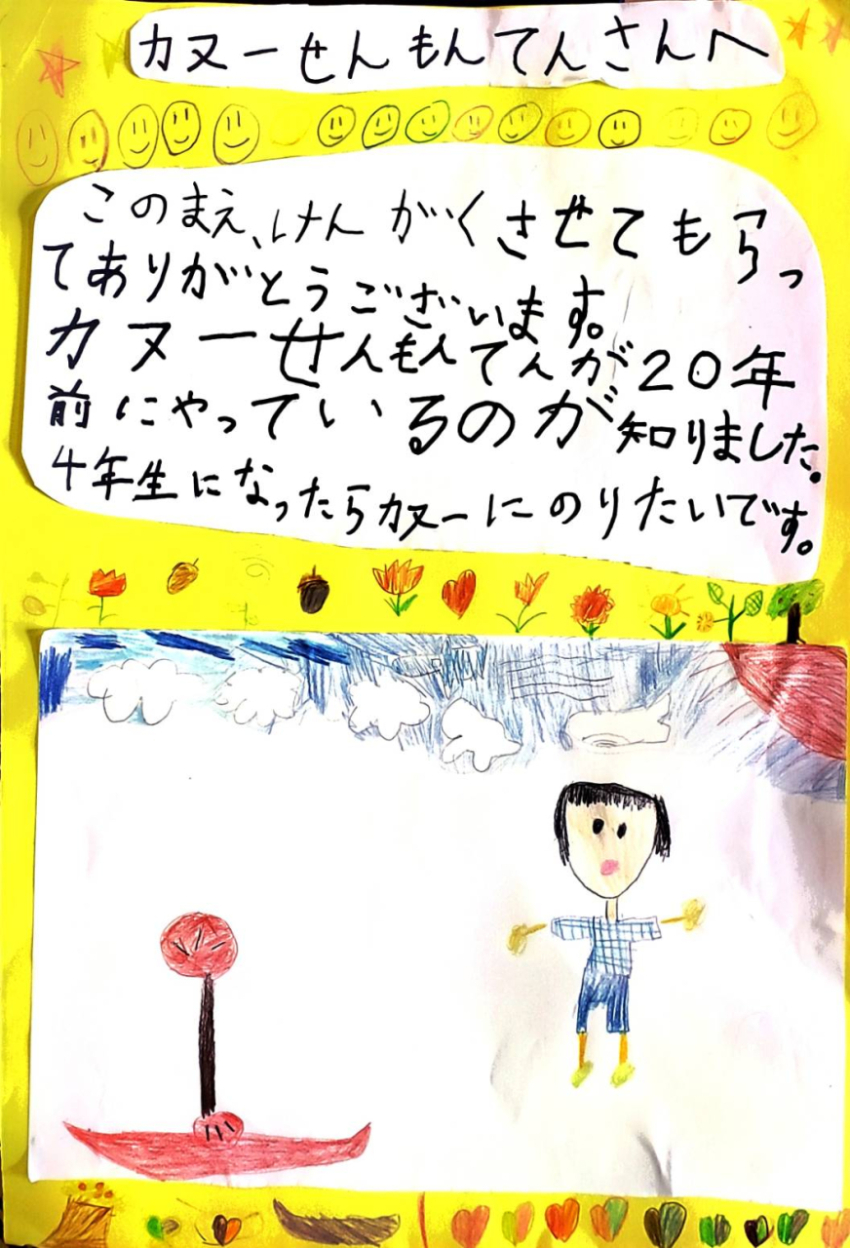 カヌーせんもんてんさんへ
このまえ、けんがくさせてもらっ
てありがとうございます。
カヌーせんもんてんが20年
前にやっているのが知りました。
4年生になったらカヌーにのりたいです。